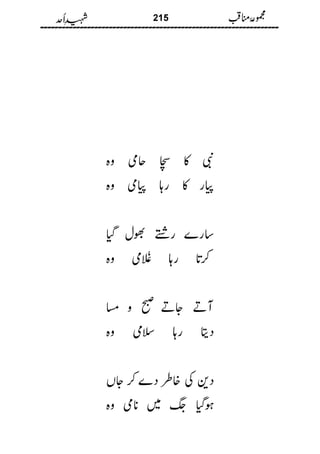 مجموعۂ مناقب 215 شہیدِ اُحد
نبی کا سچا حامی وہ
پیار کا رہا پیامی وہ
سارے رشتے بھول گیا
کرتا رہا غُلامی وہ
آتے جاتے صبح و مسا
دیتا رہا سلامی وہ
دین کی خاطر دے کر جاں
ہوگیا جگ میں نامی وہ